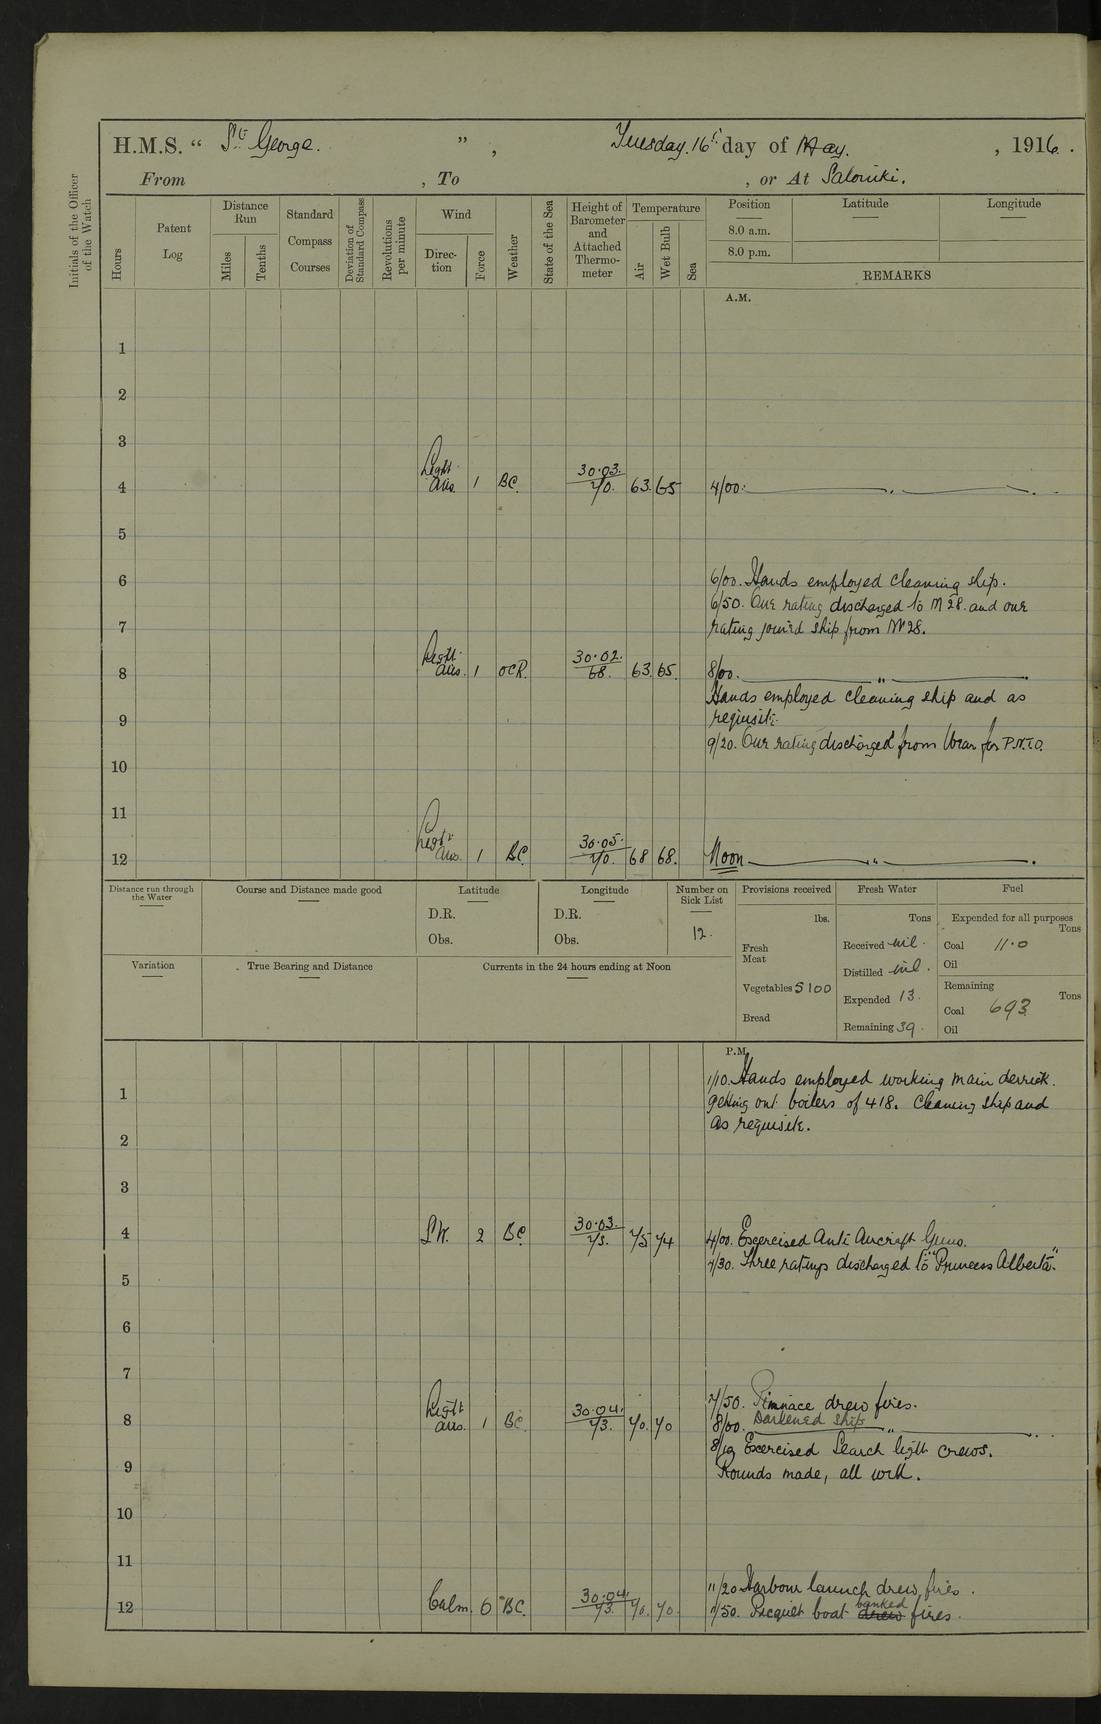 H.M.S. “ St. George. ” , Tuesday. 16th day of May. , 1916.
From , To , or At Saloniki.
Initials of the Officer of the Watch
Hours
Patent Log
Distance Run
Miles
Tenths
Standard Compass Courses
Deviation of Standard Compass
Revolutions per minute
Wind
Direction
Force
Weather
State of the Sea
Height of Barometer and Attached Thermometer
Temperature
Air
Wet Bulb
Sea
Position Latitude Longitude
8.0 a.m.
8.0 p.m.
REMARKS
A.M.
1
2
3
4 Light Airs. 1 BC. 30.03. 70. 63. 65 4/00.
5
6 6/00. Hands employed cleaning ship.
6/50. One rating discharged to M 28. and one
7 rating joined ship from M 28.
8 Light Airs. 1 OCR. 30.02. 68. 63. 65. 8/00. "
Hands employed cleaning ship and as
9 requisite.
9/20. One rating discharged from for P.N.T.O.
10
11
12 Light Airs. 1 BC. 30.05. 70. 68 68. Noon "
Distance run through the Water
Course and Distance made good
Latitude
D.R.
Obs.
Longitude
D.R.
Obs.
Number on Sick List
12.
Provisions received
lbs.
Fresh Meat
Vegetables 5100
Bread
Fresh Water
Tons
Received nil.
Distilled nil.
Expended 13.
Remaining 39.
Fuel
Expended for all purposes
Tons
Coal 11.0
Oil
Remaining
Tons
Coal 693
Oil
Variation
True Bearing and Distance
Currents in the 24 hours ending at Noon
P.M.
1/10. Hands employed working main derrick.
1 getting out boilers of 418. Cleaning ship and
as requisite.
2
3
4 S.W. 2 BC. 30.03. 73. 75 74 4/00. Exercised Anti Aircraft Guns.
4/30. Three ratings discharged to "Princess Alberta."
5
6
7
7/50. Pinnace drew fires.
8 Light airs. 1 BC. 30.04. 73. 70. 70 8/00. Darkened ship "
8/10 Exercised Search light crews.
9 Rounds made, all well.
10
11
11/20 Harbour launch drew fires.
12 Calm. 0 BC. 30.04. 73. 70. 70. 11/50. Picquet boat drew banked fires.